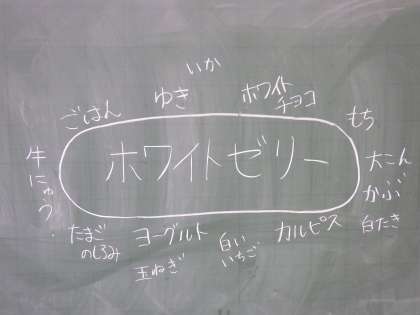 いか
ごはん
ゆき
ホワイト
チョコ
もち
牛にゅう
ホワイトゼリー
大こん
かぶ
白たき
たまご
のしろみ
ヨーグルト
玉ねぎ
白い
いちご
カルピス